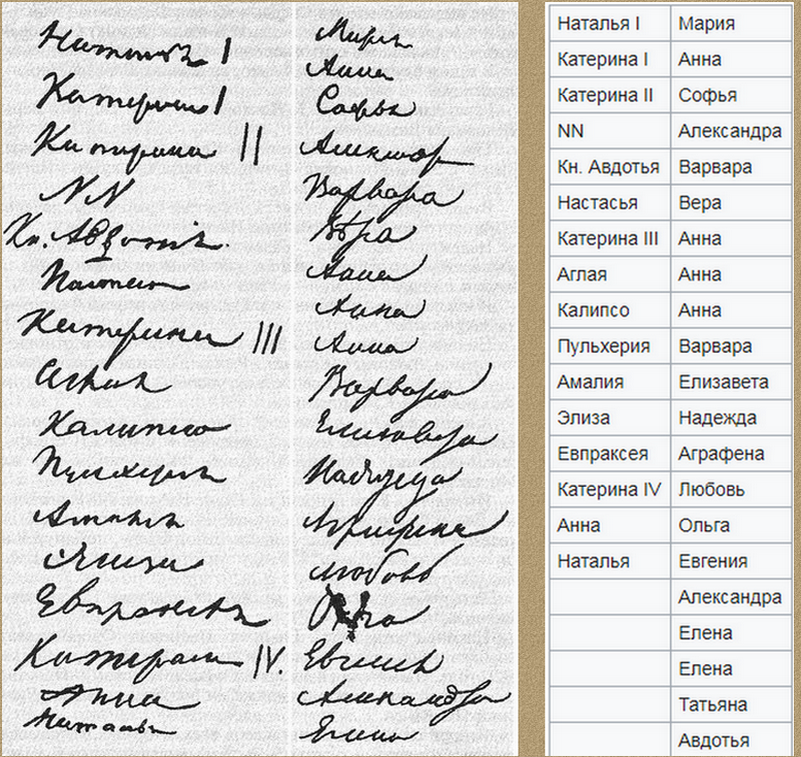 Наталья I
Катерина I
Катерина II
NN
Кн. Авдотія.
Настасья
Катерина III
Аглая
Калипсо
Пульхерія
Амалія
Элиза
Евпраксея
Катерина IV.
Анна
Наталья
Марія
Анна
Софья
Александра
Варвара
Вѣра
Анна
Анна
Анна
Варвара
Елизавета
Надежда
Аграфена
Любовь
Ольга
Евгенія
Александра
Елена
Наталья I Мария
Катерина I Анна
Катерина II Софья
NN Александра
Кн. Авдотья Варвара
Настасья Вера
Катерина III Анна
Аглая Анна
Калипсо Анна
Пульхерия Варвара
Амалия Елизавета
Элиза Надежда
Евпраксея Аграфена
Катерина IV Любовь
Анна Ольга
Наталья Евгения
Александра
Елена
Елена
Татьяна
Авдотья